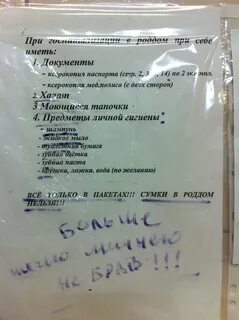 При госпитализации в роддом при себе
иметь:
1. Документы
- ксерокопия паспорта (стр. 2, 3, 14) по 2 экземп.
- ксерокопия мед.полиса (с двух сторон)
2. Халат
3 Моющиеся тапочки
4. Предметы личной гигиены
- шампунь
- жидкое мыло
- туалетная бумага
- зубная щетка
- зубная паста
- Кружка, ложка, вода (по желанию)
ВСЁ ТОЛЬКО В ПАКЕТАХ!!! СУМКИ В РОДДОМ
НЕЛЬЗЯ!!!
БОЛЬШЕ
НИЧЕГО ЛИШНЕГО
НЕ БРАТЬ!!!